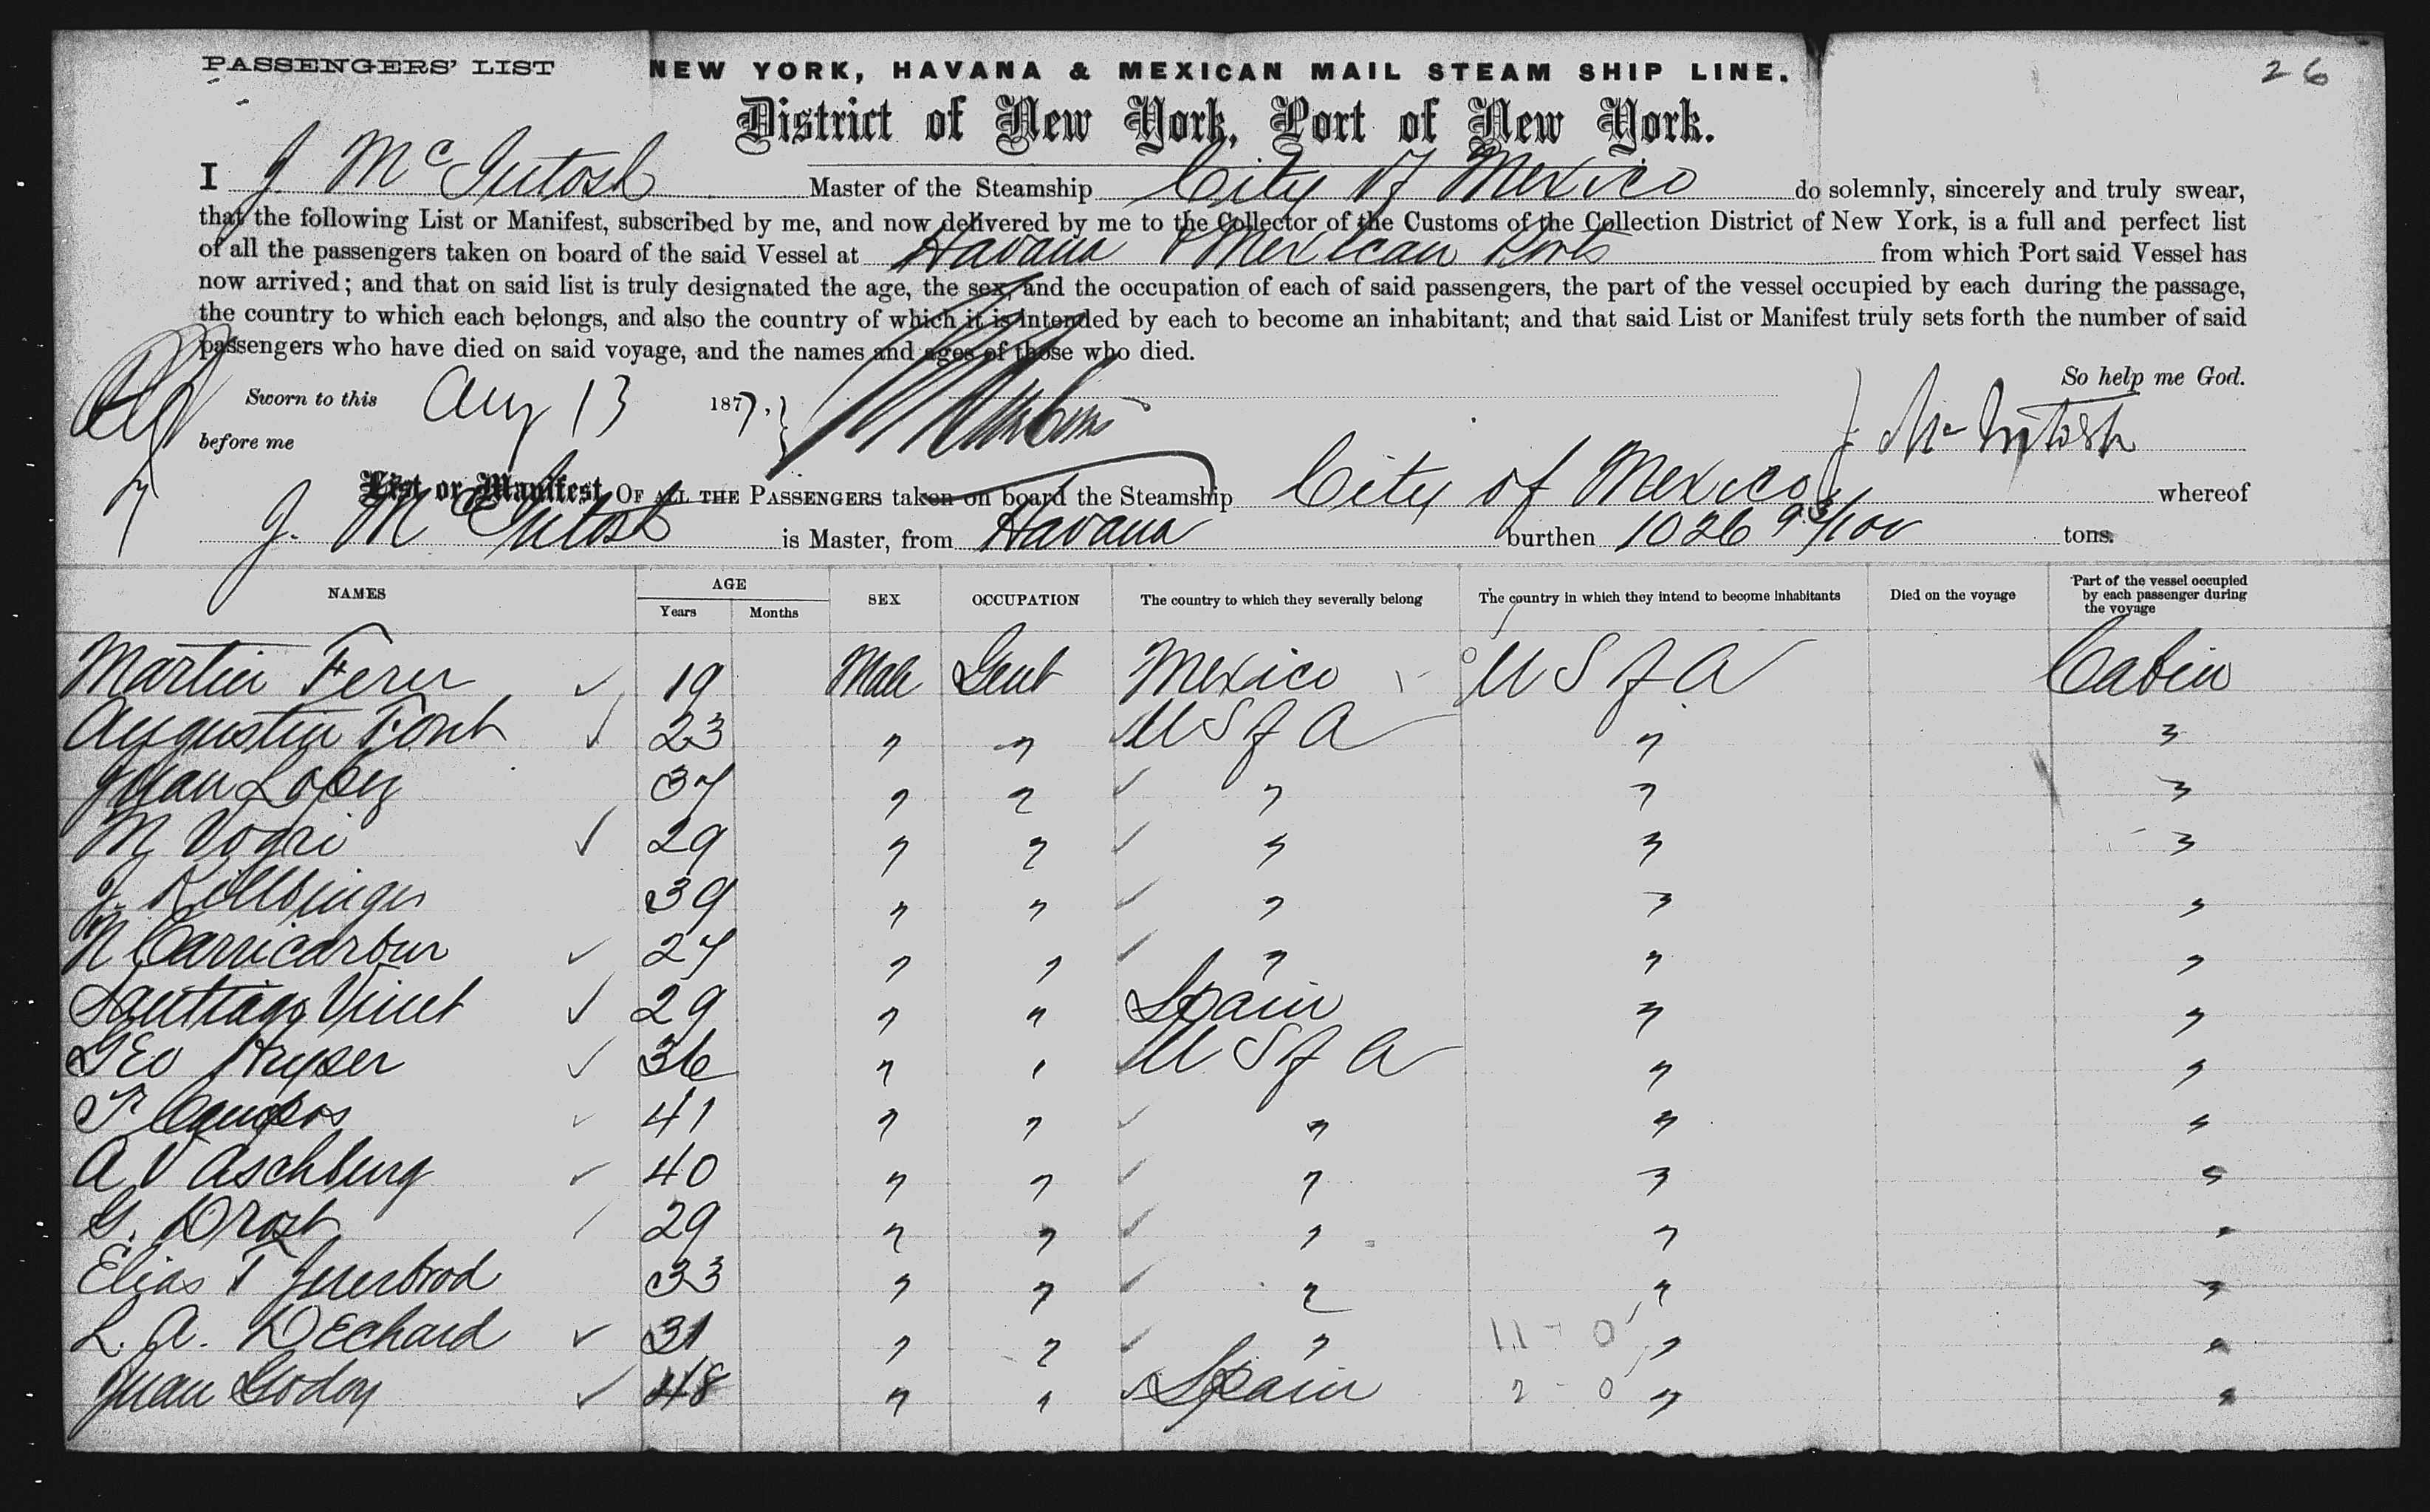 PASSENGERS' LIST NEW YORK, HAVANA & MEXICAN MAIL STEAM SHIP LINE. 26
District of New York, Port of New York.
I J. McIntosh Master of the Steamship City of Mexico do solemnly, sincerely and truly swear,
that the following List or Manifest, subscribed by me, and now delivered by me to the Collector of the Customs of the Collection District of New York, is a full and perfect list
of all the passengers taken on board of the said Vessel at Havana & Mexican Ports from which Port said Vessel has
now arrived; and that on said list is truly designated the age, the sex, and the occupation of each of said passengers, the part of the vessel occupied by each during the passage,
the country to which each belongs, and also the country of which it is intended by each to become an inhabitant; and that said List or Manifest truly sets forth the number of said
passengers who have died on said voyage, and the names and ages of those who died.
So help me God.
Sworn to this Aug 13 1877, J McIntosh
before me
List or Manifest OF ALL THE PASSENGERS taken on board the Steamship City of Mexico whereof
J. McIntosh is Master, from Havana burthen 1026 93/100 tons.
NAMES AGE Years Months SEX OCCUPATION The country to which they severally belong The country in which they intend to become inhabitants Died on the voyage Part of the vessel occupied by each passenger during the voyage
Martin Ferer 19 Male Gent Mexico U S of A Cabin
Augustin Font 23 " " U S of A " "
Juan Lopez 37 " " " " "
M 29 " " " " "
J. 39 " " " " "
N Carricarbur 27 " " " " "
Santiago Vinet 29 " " Spain " "
Geo Kryser 36 " " U S of A " "
F Campos 41 " " " " "
A V Aschberg 40 " " " " "
G. Drost 29 " " " " "
Elias T 33 " " " " "
L. A. DEchard 31 " " " 11 - 0 " "
Juan Godoy 48 " " Spain 2 - 0 " "